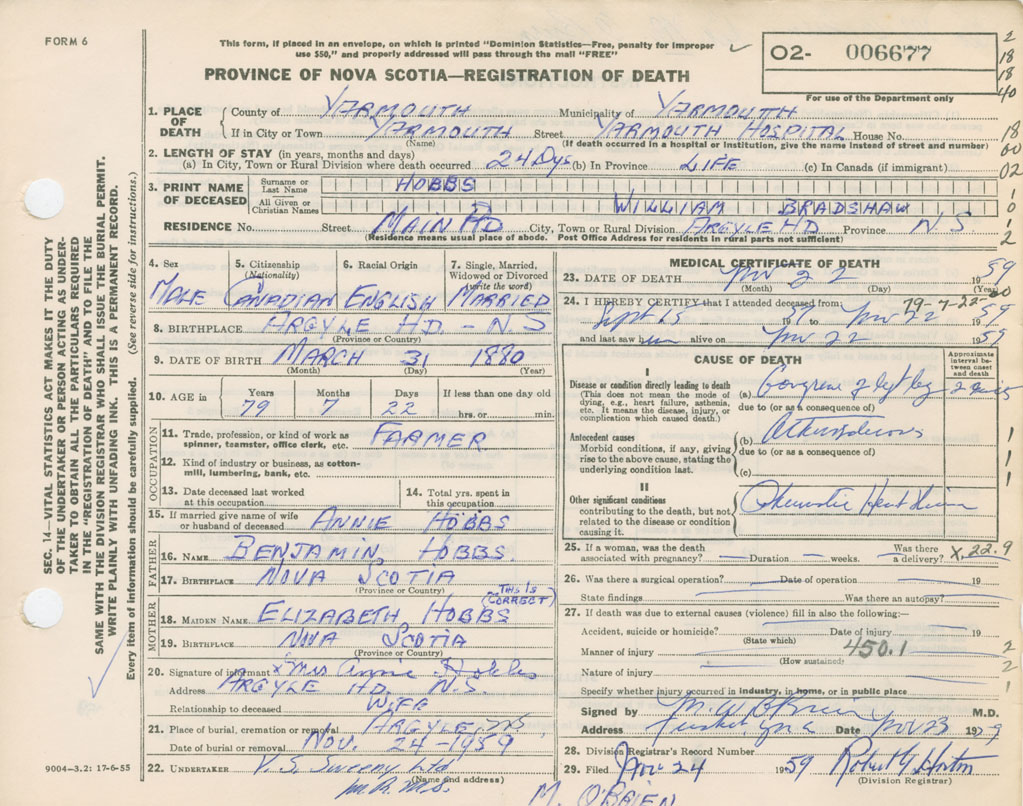 FORM 6
This form, if placed in an envelope, on which is printed "Dominion Statistics—Free, penalty for improper
use $50," and properly addressed will pass through the mail "FREE"
PROVINCE OF NOVA SCOTIA—REGISTRATION OF DEATH
02- 006677
For use of the Department only
2
18
18
40
18
00
02
1
0
1
2
1. PLACE OF DEATH
County of YARMOUTH Municipality of YARMOUTH
If in City or Town YARMOUTH Street YARMOUTH HOSPITAL House No.
(Name) (If death occurred in a hospital or institution, give the name instead of street and number)
2. LENGTH OF STAY (in years, months and days)
(a) In City, Town or Rural Division where death occurred 24 Dys (b) In Province LIFE (c) In Canada (if immigrant)
3. PRINT NAME OF DECEASED
Surname or Last Name HOBBS
All Given or Christian Names WILLIAM BRADSHAW
RESIDENCE No. Street MAIN RD City, Town or Rural Division ARGYLE HD. Province N.S
(Residence means usual place of abode. Post Office Address for residents in rural parts not sufficient)
4. Sex 5. Citizenship (Nationality) 6. Racial Origin 7. Single, Married, Widowed or Divorced (write the word)
MALE CANADIAN ENGLISH MARRIED
8. BIRTHPLACE ARGYLE HD - N.S
(Province or Country)
9. DATE OF BIRTH MARCH 31 1880
(Month) (Day) (Year)
10. AGE in Years Months Days If less than one day old
79 7 22 hrs. or min.
OCCUPATION
11. Trade, profession, or kind of work as spinner, teamster, office clerk, etc. FARMER
12. Kind of industry or business, as cotton-mill, lumbering, bank, etc.
13. Date deceased last worked at this occupation
14. Total yrs. spent in this occupation
15. If married give name of wife or husband of deceased ANNIE HOBBS
FATHER
16. NAME BENJAMIN HOBBS
17. BIRTHPLACE NOVA SCOTIA
(Province or Country)
THIS IS (CORRECT)
MOTHER
18. MAIDEN NAME ELIZABETH HOBBS
19. BIRTHPLACE NOVA SCOTIA
(Province or Country)
20. Signature of informant x Mrs Annie Hobbs
Address ARGYLE HD. N.S.
Relationship to deceased WIFE
21. Place of burial, cremation or removal ARGYLE, NS
Date of burial or removal NOV. 24-1959
22. UNDERTAKER V. S. Sweeny Ltd
(Name and address)
MEDICAL CERTIFICATE OF DEATH
23. DATE OF DEATH Nov 22 1959
(Month) (Day) (Year)
79-7-22-00
24. I HEREBY CERTIFY that I attended deceased from:
Sept 15 59 to Nov 22 1959
and last saw him alive on Nov 22 1959
CAUSE OF DEATH
Approximate interval between onset and death
I
Disease or condition directly leading to death
(This does not mean the mode of dying, e.g., heart failure, asthenia, etc. It means the disease, injury, or complication which caused death.)
(a) Gangrene of left leg
due to (or as a consequence of)
Antecedent causes
Morbid conditions, if any, giving rise to the above cause, stating the underlying condition last.
(b)
due to (or as a consequence of)
(c)
1
1
1
II
Other significant conditions
contributing to the death, but not related to the disease or condition causing it.
Heart
25. If a woman, was the death associated with pregnancy? Duration weeks. Was there a delivery? X.22.9
26. Was there a surgical operation? Date of operation 19
State findings Was there an autopsy?
27. If death was due to external causes (violence) fill in also the following:—
Accident, suicide or homicide? Date of injury 19
(State which)
450.1
Manner of injury
(How sustained)
Nature of injury
2
2
1
Specify whether injury occurred in industry, in home, or in public place
Signed by M. W. O'Brien M.D.
Address Date Nov 23 1959
28. Division Registrar's Record Number
29. Filed Nov 24 1959 Robert G Horton
(Division Registrar)
M. O'BRIEN
SEC. 14—VITAL STATISTICS ACT MAKES IT THE DUTY
OF THE UNDERTAKER OR PERSON ACTING AS UNDER-
TAKER TO OBTAIN ALL THE PARTICULARS REQUIRED
IN THE "REGISTRATION OF DEATH" AND TO FILE THE
SAME WITH THE DIVISION REGISTRAR WHO SHALL ISSUE THE BURIAL PERMIT.
WRITE PLAINLY WITH UNFADING INK. THIS IS A PERMANENT RECORD.
Every item of information should be carefully supplied. (See reverse side for instructions.)
9004—3.2: 17-6-55